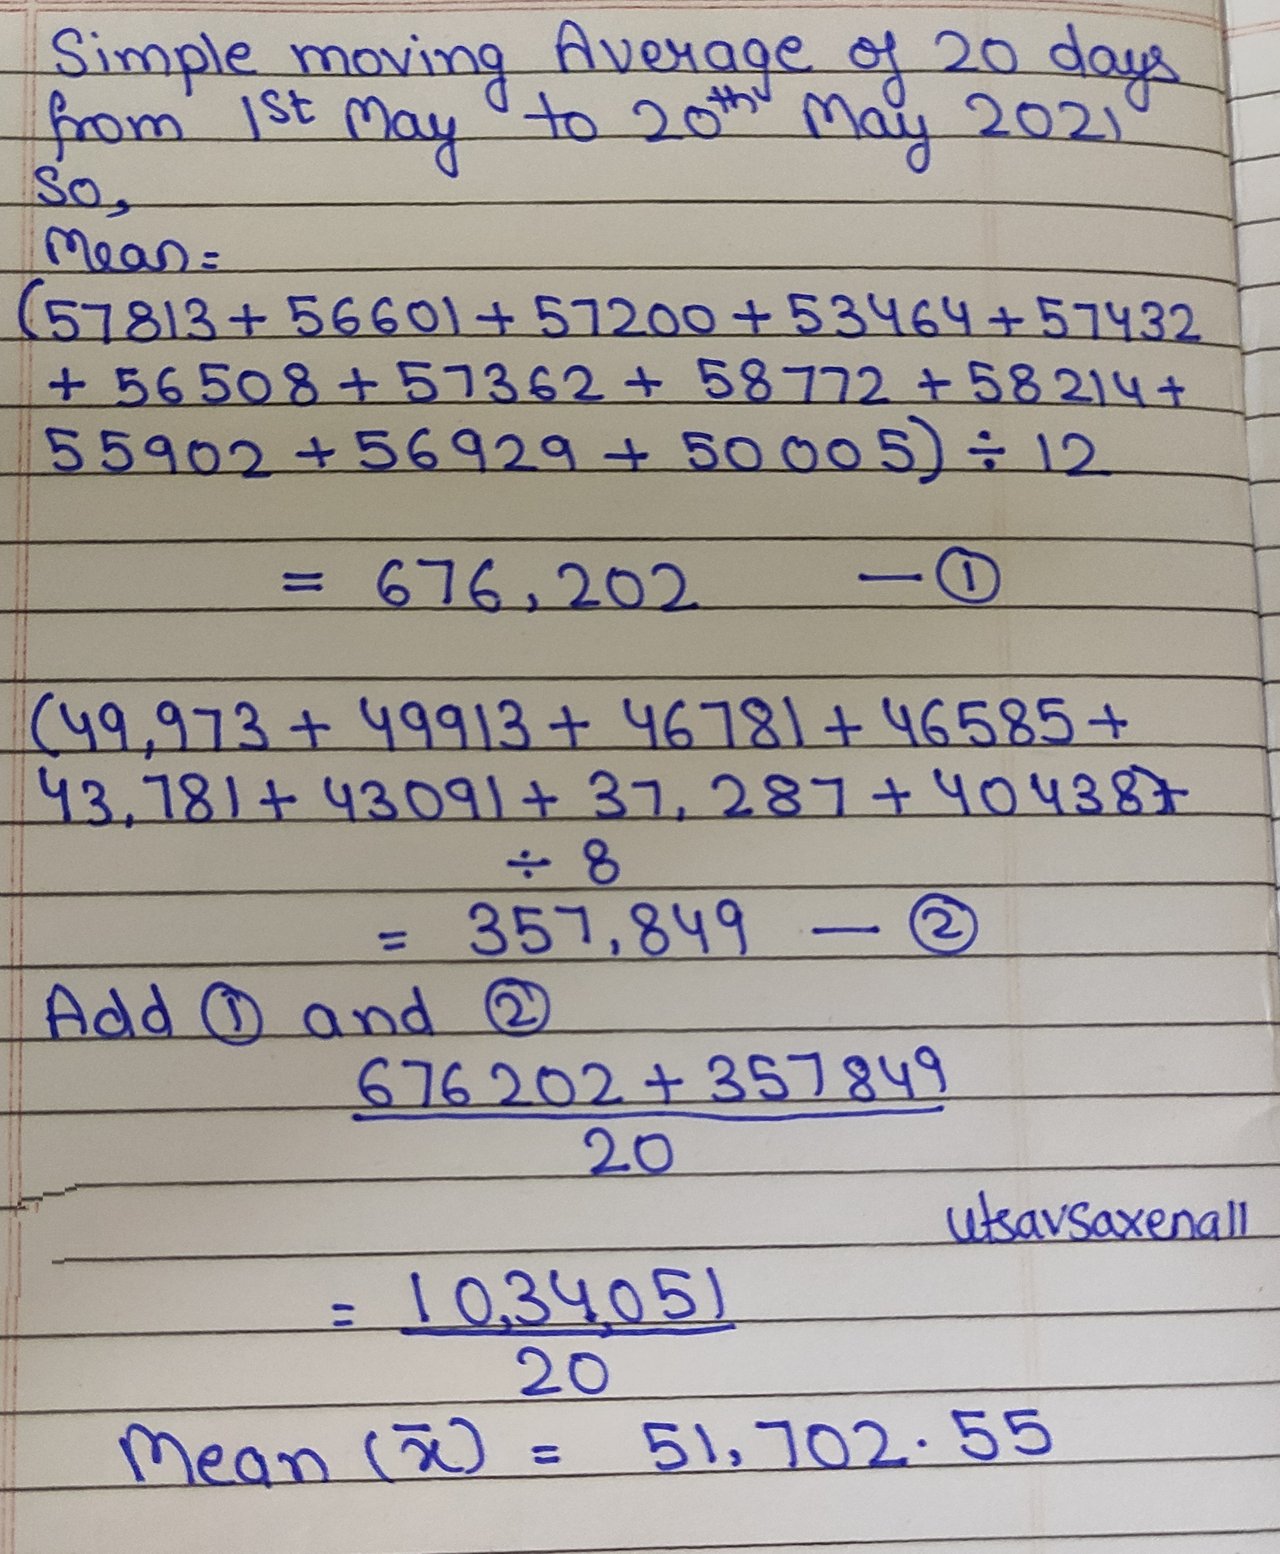 Simple moving Average of 20 days
from 1st May to 20th May 2021
So,
Mean =
(57813 + 56601 + 57200 + 53464 + 57432
+ 56508 + 57362 + 58772 + 58214 +
55902 + 56929 + 50005) ÷ 12
= 676,202 — ①
(49,973 + 49913 + 46781 + 46585 +
43,781 + 43091 + 37,287 + 40438)
÷ 8
= 357,849 — ②
Add ① and ②
676202 + 357849
20
utsavsaxena11
= 10,34,051
20
Mean (x̄) = 51,702.55